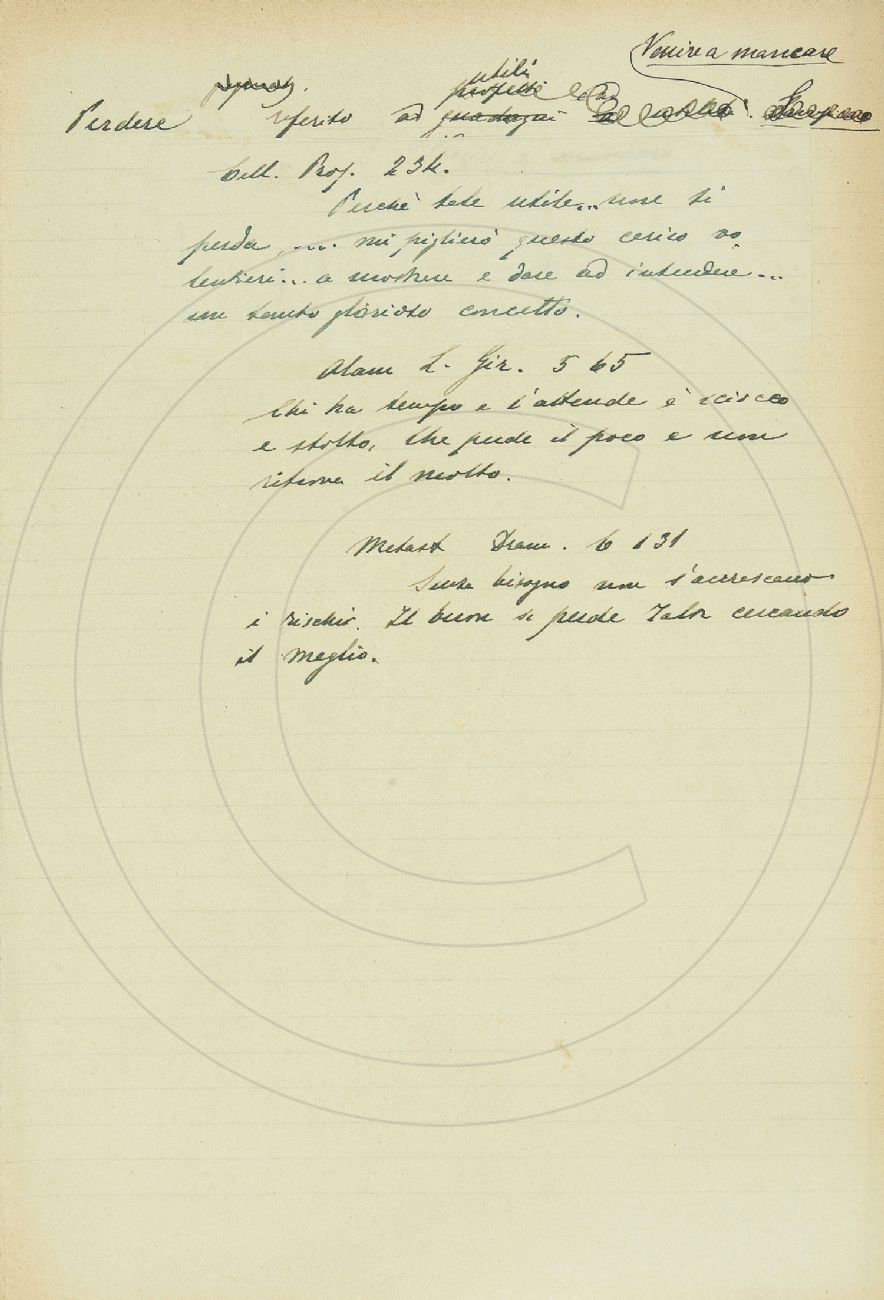 Venire a mancare
utili
profitti
Perdere referito ad guadagni
Cell. Pros. 234.
Perchè tale utile... non si
perda, .... mi piglierò questo carico vo
lentieri... a mostrare e dare ad intendere...
un tanto glorioso concetto.
Alam L. Gir. 5 65
Chi ha tempo e l'attende è sciocco
e stolto, Che perde il poco e non
ritrova il molto.
Metast Dram. 6 131
Senza bisogno non s'accrescano
i rischi. Il buon si perde Talor cercando
il meglio.